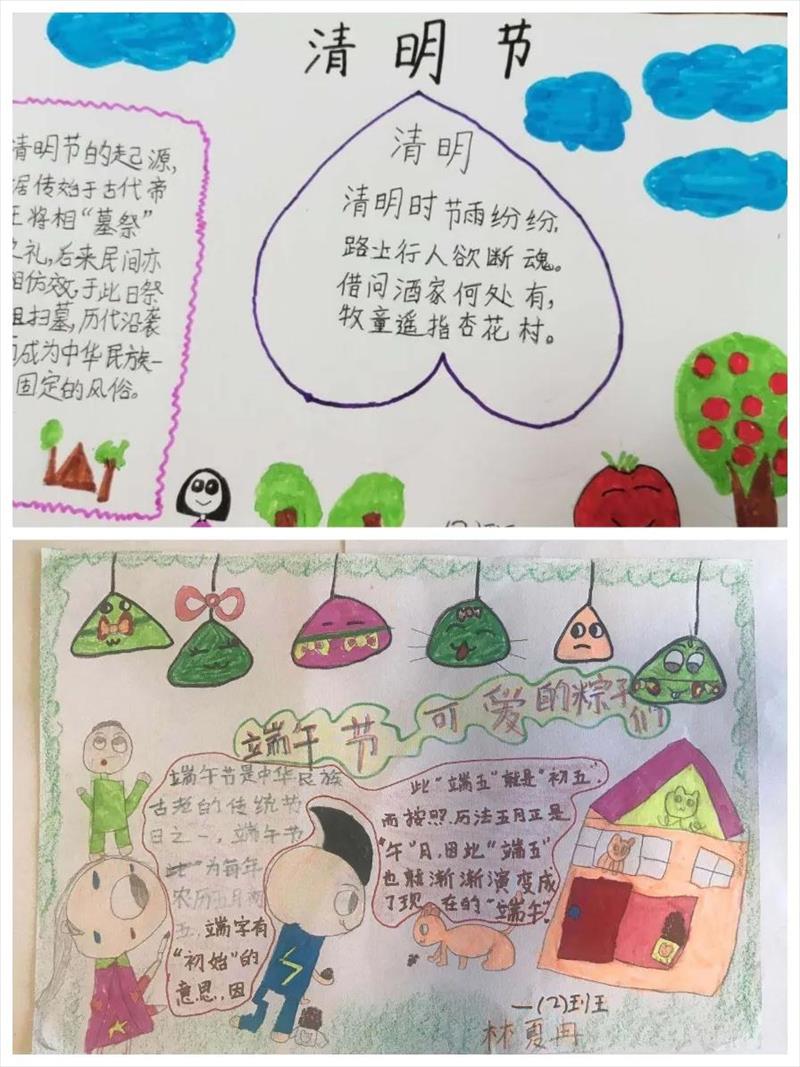 清明节
清明节的起源,
据传始于古代帝
王将相“墓祭”
之礼,后来民间亦
相仿效,于此日祭
祖扫墓,历代沿袭
而成为中华民族一
固定的风俗。
清明
清明时节雨纷纷,
路上行人欲断魂。
借问酒家何处有,
牧童遥指杏花村。
端午节 可爱的粽子们
端午节是中华民族
古老的传统节
日之一,端午节
为每年
农历五月初
五,端字有
“初始”的
意思,因
此“端五”就是“初五”.
而按照历法五月正是
“午”月,因此“端五”
也就渐渐演变成
了现在的“端午”.
一(2)班王
林夏冉